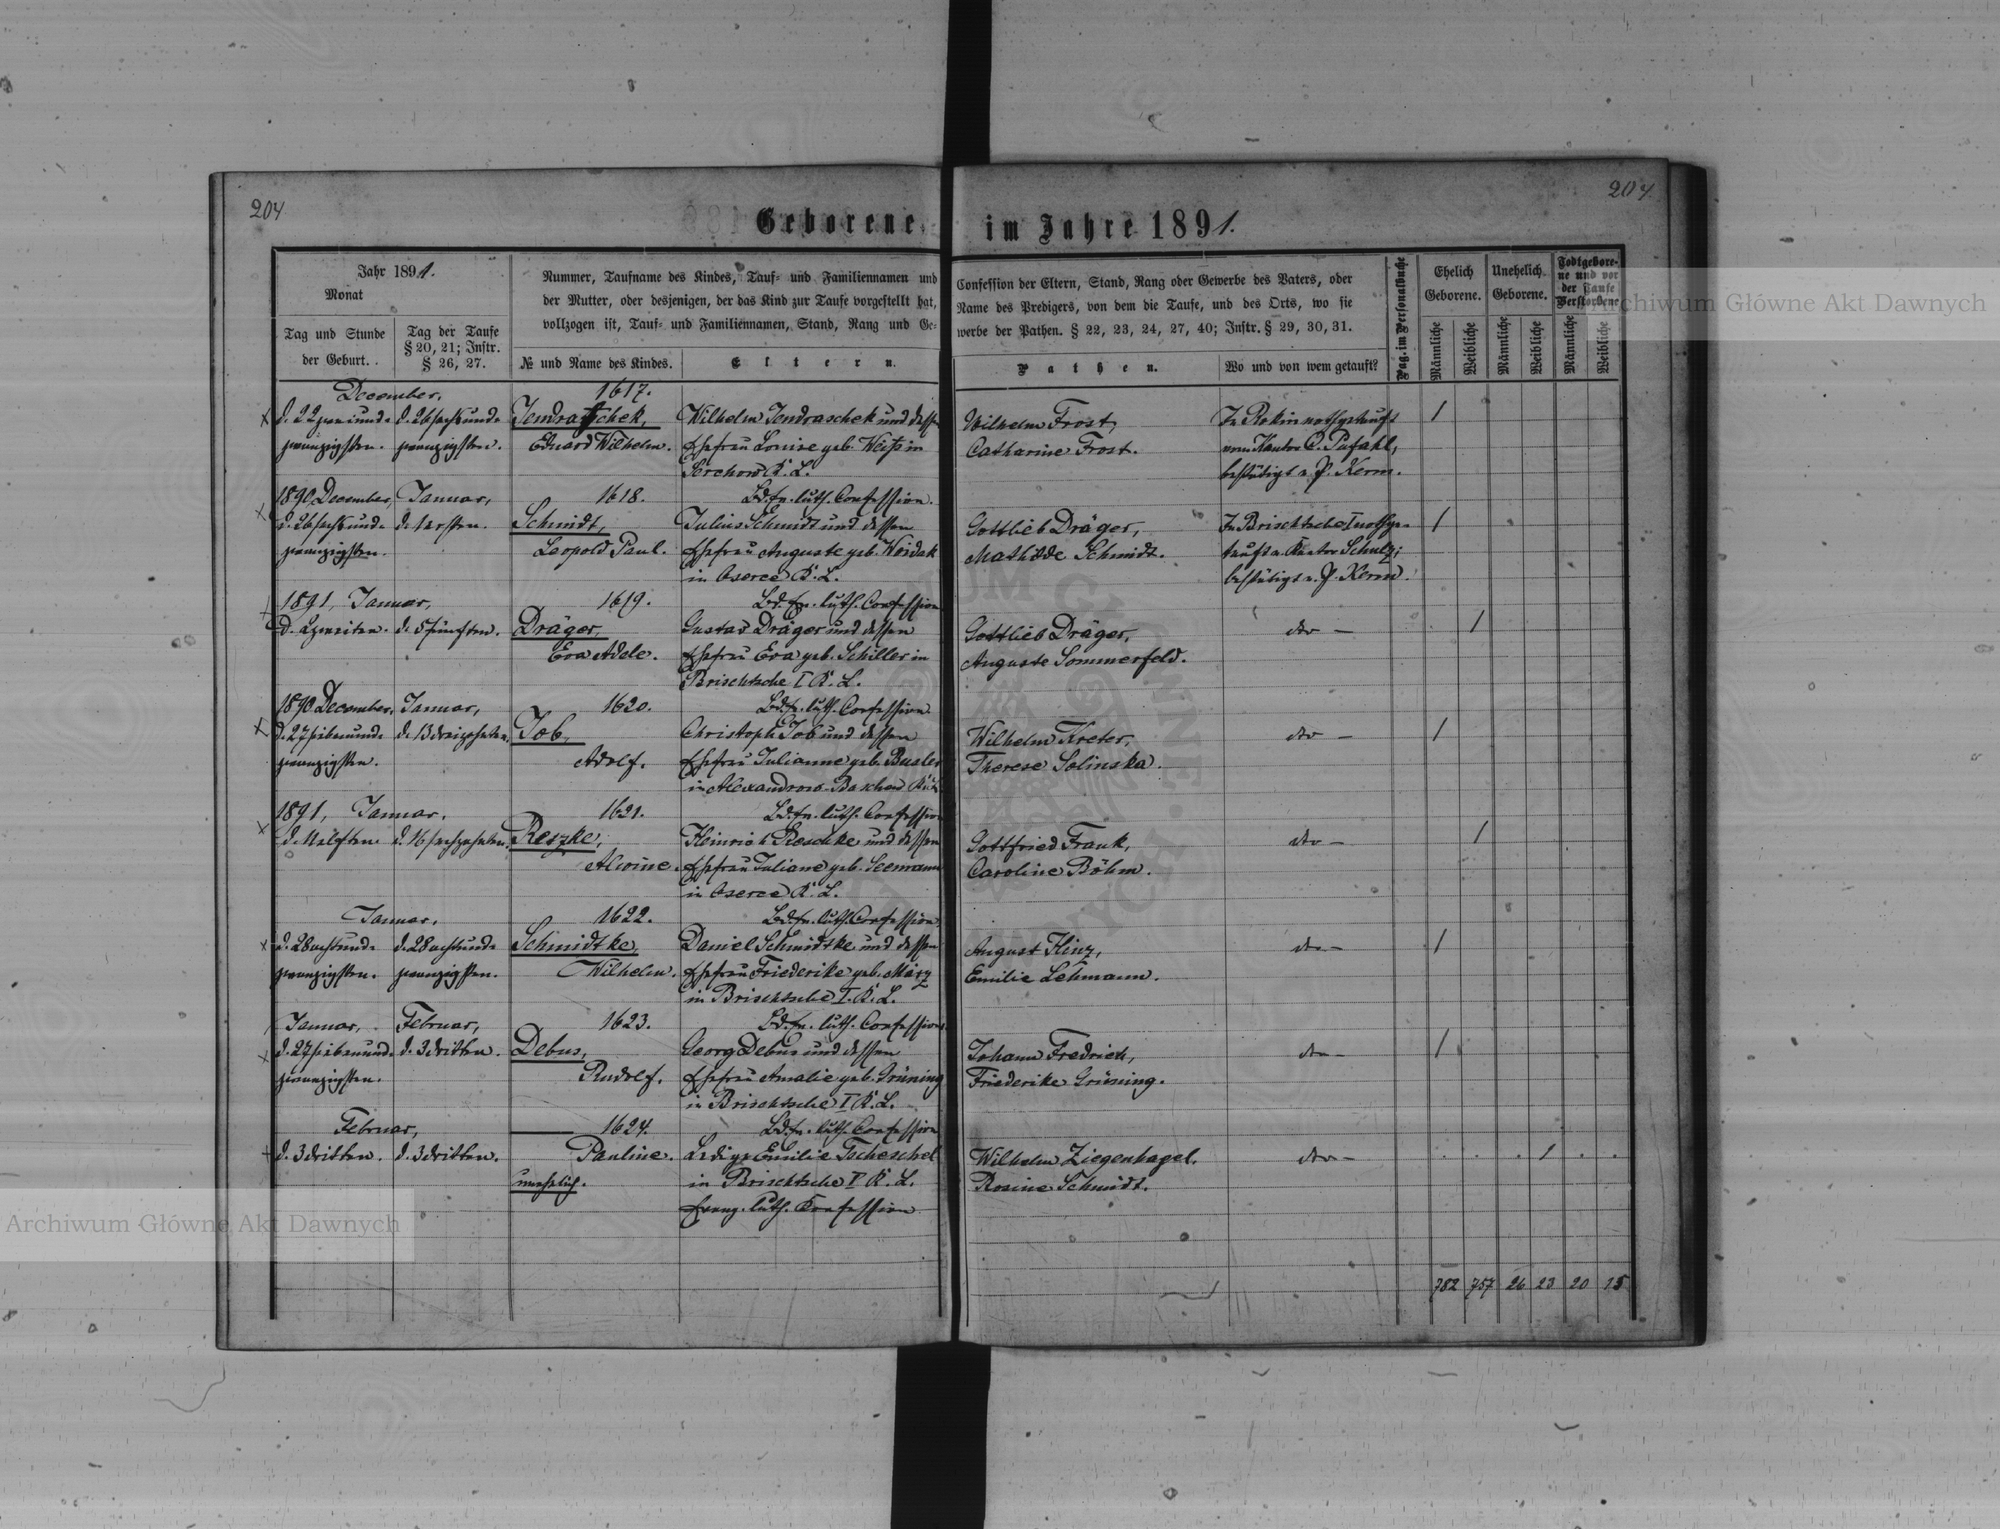 204
204
Geborene im Jahre 1891.
Jahr 1891.
Monat
Tag und Stunde
der Geburt.
Tag der Taufe
§ 20, 21; Instr.
§ 26, 27.
Nummer, Taufname des Kindes, Tauf- und Familiennamen und
der Mutter, oder desjenigen, der das Kind zur Taufe vorgestellt hat,
vollzogen ist, Tauf- und Familiennamen, Stand, Rang und Ge-
№ und Name des Kindes.
Eltern.
Confession der Eltern, Stand, Rang oder Gewerbe des Vaters, oder
Name des Predigers, von dem die Taufe, und des Orts, wo sie
werbe der Pathen. § 22, 23, 24, 27, 40; Instr. § 29, 30, 31.
Pathen.
Wo und von wem getauft?
Pag. im Personalbuche
Ehelich
Geborene.
Unehelich
Geborene.
Todtgebore-
ne und vor
der Taufe
Verstorbene
Männliche
Weibliche
Männliche
Weibliche
Männliche
Weibliche
December,
d. 22 zweiund-
zwanzigsten.
d. 26 sechsund-
zwanzigsten.
1617.
Jendraschek,
Eduard Wilhelm.
Wilhelm Jendraschek und dessen
Ehefrau Louise geb. Weiss in
K. L.
Wilhelm Frost,
Catharine Frost.
In Rokin nothgetauft
vom Kantor C. Pufahl,
bestätigt v. P. Kerm.
1
1890 December,
d. 26 sechsund-
zwanzigsten.
Januar,
d. 1 ersten.
1618.
Schmidt,
Leopold Paul.
Bd. ev. luth. Confession.
Julius Schmidt und dessen
Ehefrau Auguste geb. Woidak
in Oserce K. L.
Gottlieb Dräger,
Mathilde Schmidt.
In Brischtsche I nothge-
tauft v. Kantor Schulz;
bestätigt v. P. Kerm.
1
1891, Januar,
d. 2 zweiten.
d. 5 fünften.
1619.
Dräger,
Eva Adele.
Bd. ev. luth. Confession
Gustav Dräger und dessen
Ehefrau Eva geb. Schiller in
Brischtsche I K. L.
Gottlieb Dräger,
Auguste Sommerfeld.
dto –
1
1890 December,
d. 27 siebenund-
zwanzigsten.
Januar,
d. 13 dreizehnten.
1620.
Job,
Adolf.
Bd. ev. luth. Confession
Christoph Job und dessen
Ehefrau Julianne geb. Busler
in Alexandrow-
Wilhelm Kreter,
Therese Solinska.
dto –
1
1891, Januar.
d. 11 elften
d. 16 sechzehnten.
1621.
Reszke,
Alwine.
Bd. ev. luth. Confession
Heinrich Roschke und dessen
Ehefrau Juliane geb. Seemann
in Oserce K. L.
Gottfried Frank,
Caroline Böhm.
dto –
1
Januar.
d. 28 achtund-
zwanzigsten.
d. 28 achtund-
zwanzigsten.
1622.
Schmidtke,
Wilhelm.
Bd. ev. luth. Confession,
Daniel Schmidtke und dessen
Ehefrau Friederike geb. März
in Brischtsche I. K. L.
August Hinz,
Emilie Lehmann.
dto –
1
Januar,
d. 27 siebenund-
zwanzigsten.
Februar,
d. 3 dritten.
1623.
Debus,
Rudolf.
Bd. ev. luth. Confession
Georg Debus und dessen
Ehefrau Amalie geb. Grüning
in Brischtsche I K. L.
Johann Fredrich,
Friederike Grüning.
dto –
1
Februar,
d. 3 dritten.
d. 3 dritten.
1624.
Pauline.
unehelich.
Bd. ev. luth. Confession
Ledige Emilie Tscheschel
in Brischtsche I K. L.
Evang. luth. Konfession
Wilhelm Ziegenhagel.
Rosine Schmidt.
dto –
1
782 757 26 23 20 15
Archiwum Główne Akt Dawnych
Archiwum Główne Akt Dawnych